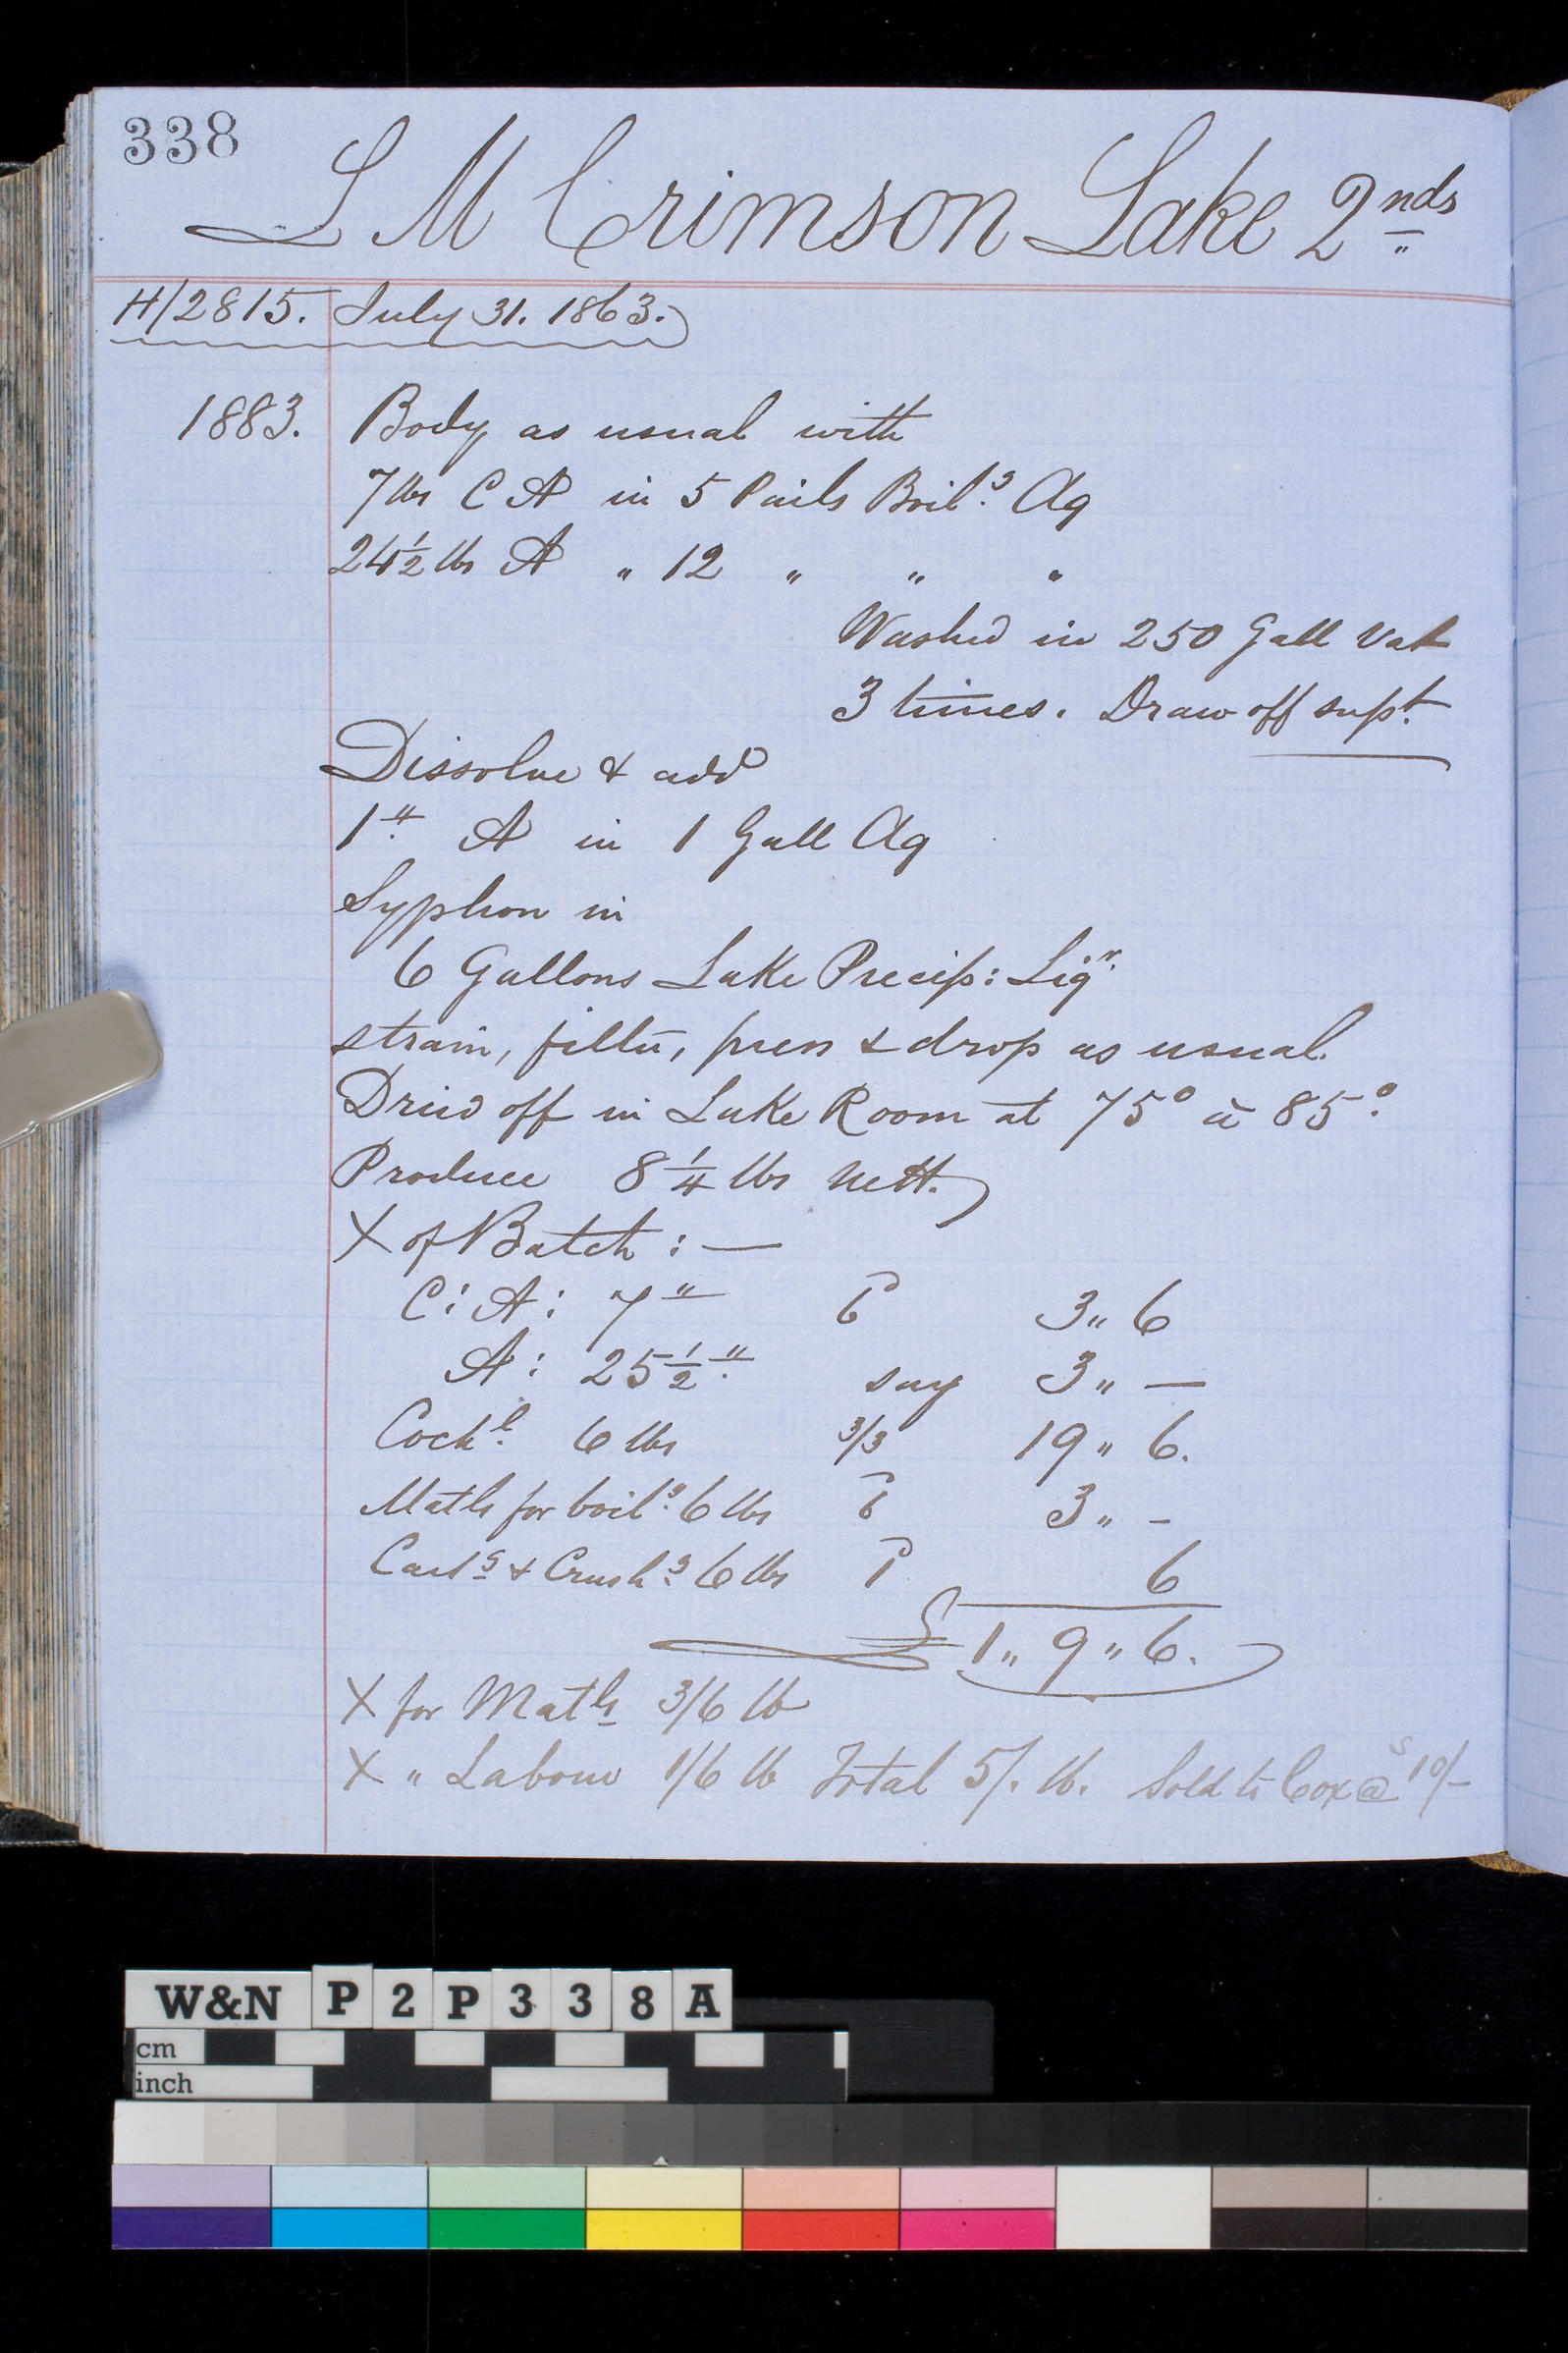 338
L M Crimson Lake 2nds
H/2815. July 31. 1863.
1883. Body as usual with
7 lbs C A in 5 Pails Boilg. Aq
24½ lbs A " 12 " " "
Washed in 250 Gall Vat
3 times. Draw off supt.
Dissolve & add
1 " A in 1 Gall Aq
Syphon in
6 Gallons Lake Precip: Liqr.
strain, filter, press & drop as usual.
Dried off in Lake Room at 75° à 85°.
Produce 8¼ lbs nett.
X of Batch : —
C: A: 7 " 6 3 " 6
A: 25½ " say 3 " —
Cochl. 6 lbs 3/3 19 " 6.
Matls for boilg. 6 lbs 6 3 " -
Cartg & Crushg. 6 lbs 1 6
£ 1 " 9 " 6.
X for Matls 3/6 lb
X " Labour 1/6 lb Total 5/. lb. Sold to Cox @ s 10/-
W&N P2P338A
cm
inch